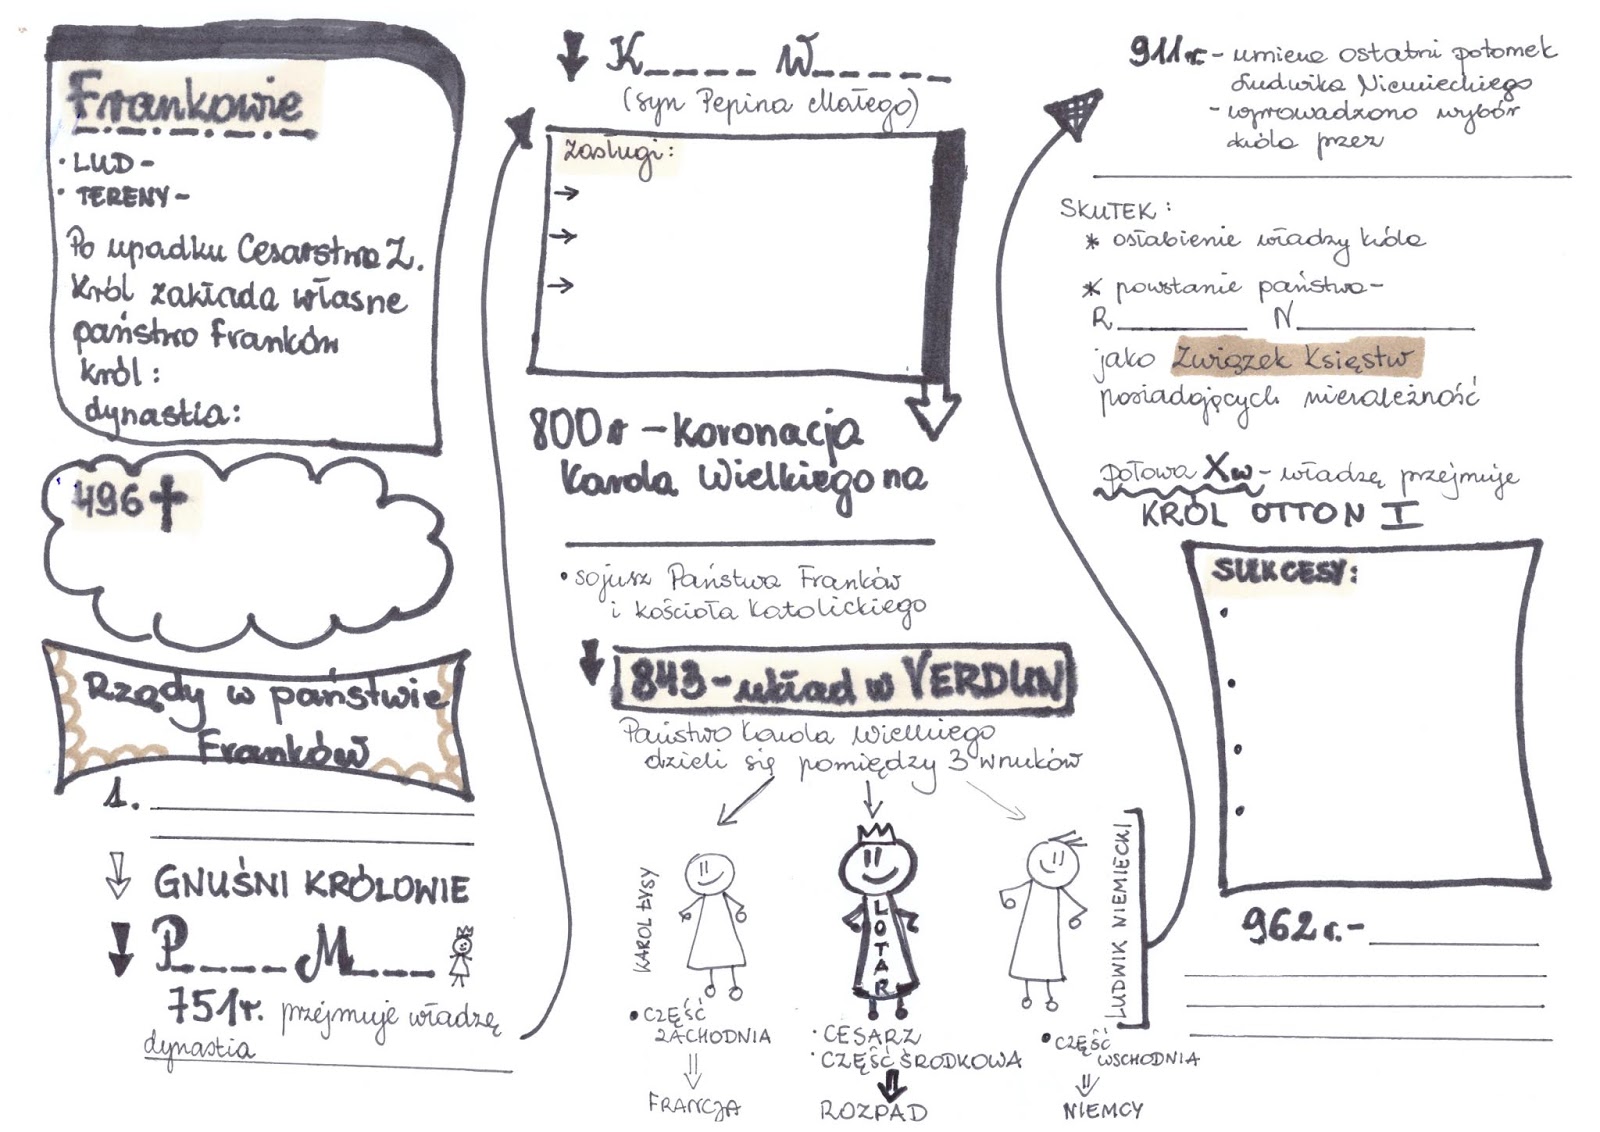 Frankowie
• LUD -
• TERENY -
Po upadku Cesarstwa Z.
Król zakłada własne
państwo Franków
król:
dynastia:
496 ✝
Rządy w państwie
Franków
1.
GNUŚNI KRÓLOWIE
P_ _ _ _ _ M_ _ _ _
751r. przejmuje władzę
dynastia
K_ _ _ _ _ W_ _ _ _ _ _
(syn Pepina Małego)
Zasługi:
→
→
→
800 r - koronacja
Karola Wielkiego na
• sojusz Państwa Franków
i Kościoła Katolickiego
843 - układ w VERDUN
Państwo Karola Wielkiego
dzieli się pomiędzy 3 wnuków
KAROL ŁYSY
• CZĘŚĆ
ZACHODNIA
FRANCJA
LOTAR
• CESARZ
• CZĘŚĆ ŚRODKOWA
ROZPAD
LUDWIK NIEMIECKI
• CZĘŚĆ
WSCHODNIA
NIEMCY
911r. - umiera ostatni potomek
Ludwika Niemieckiego
- wprowadzono wybór
króla przez
SKUTEK:
* osłabienie władzy króla
* powstanie państwa -
R________ N________
jako Związek Księstw
posiadających niezależność
połowa Xw - władzę przejmuje
KRÓL OTTON I
SUKCESY:
•
•
•
•
962 r. -